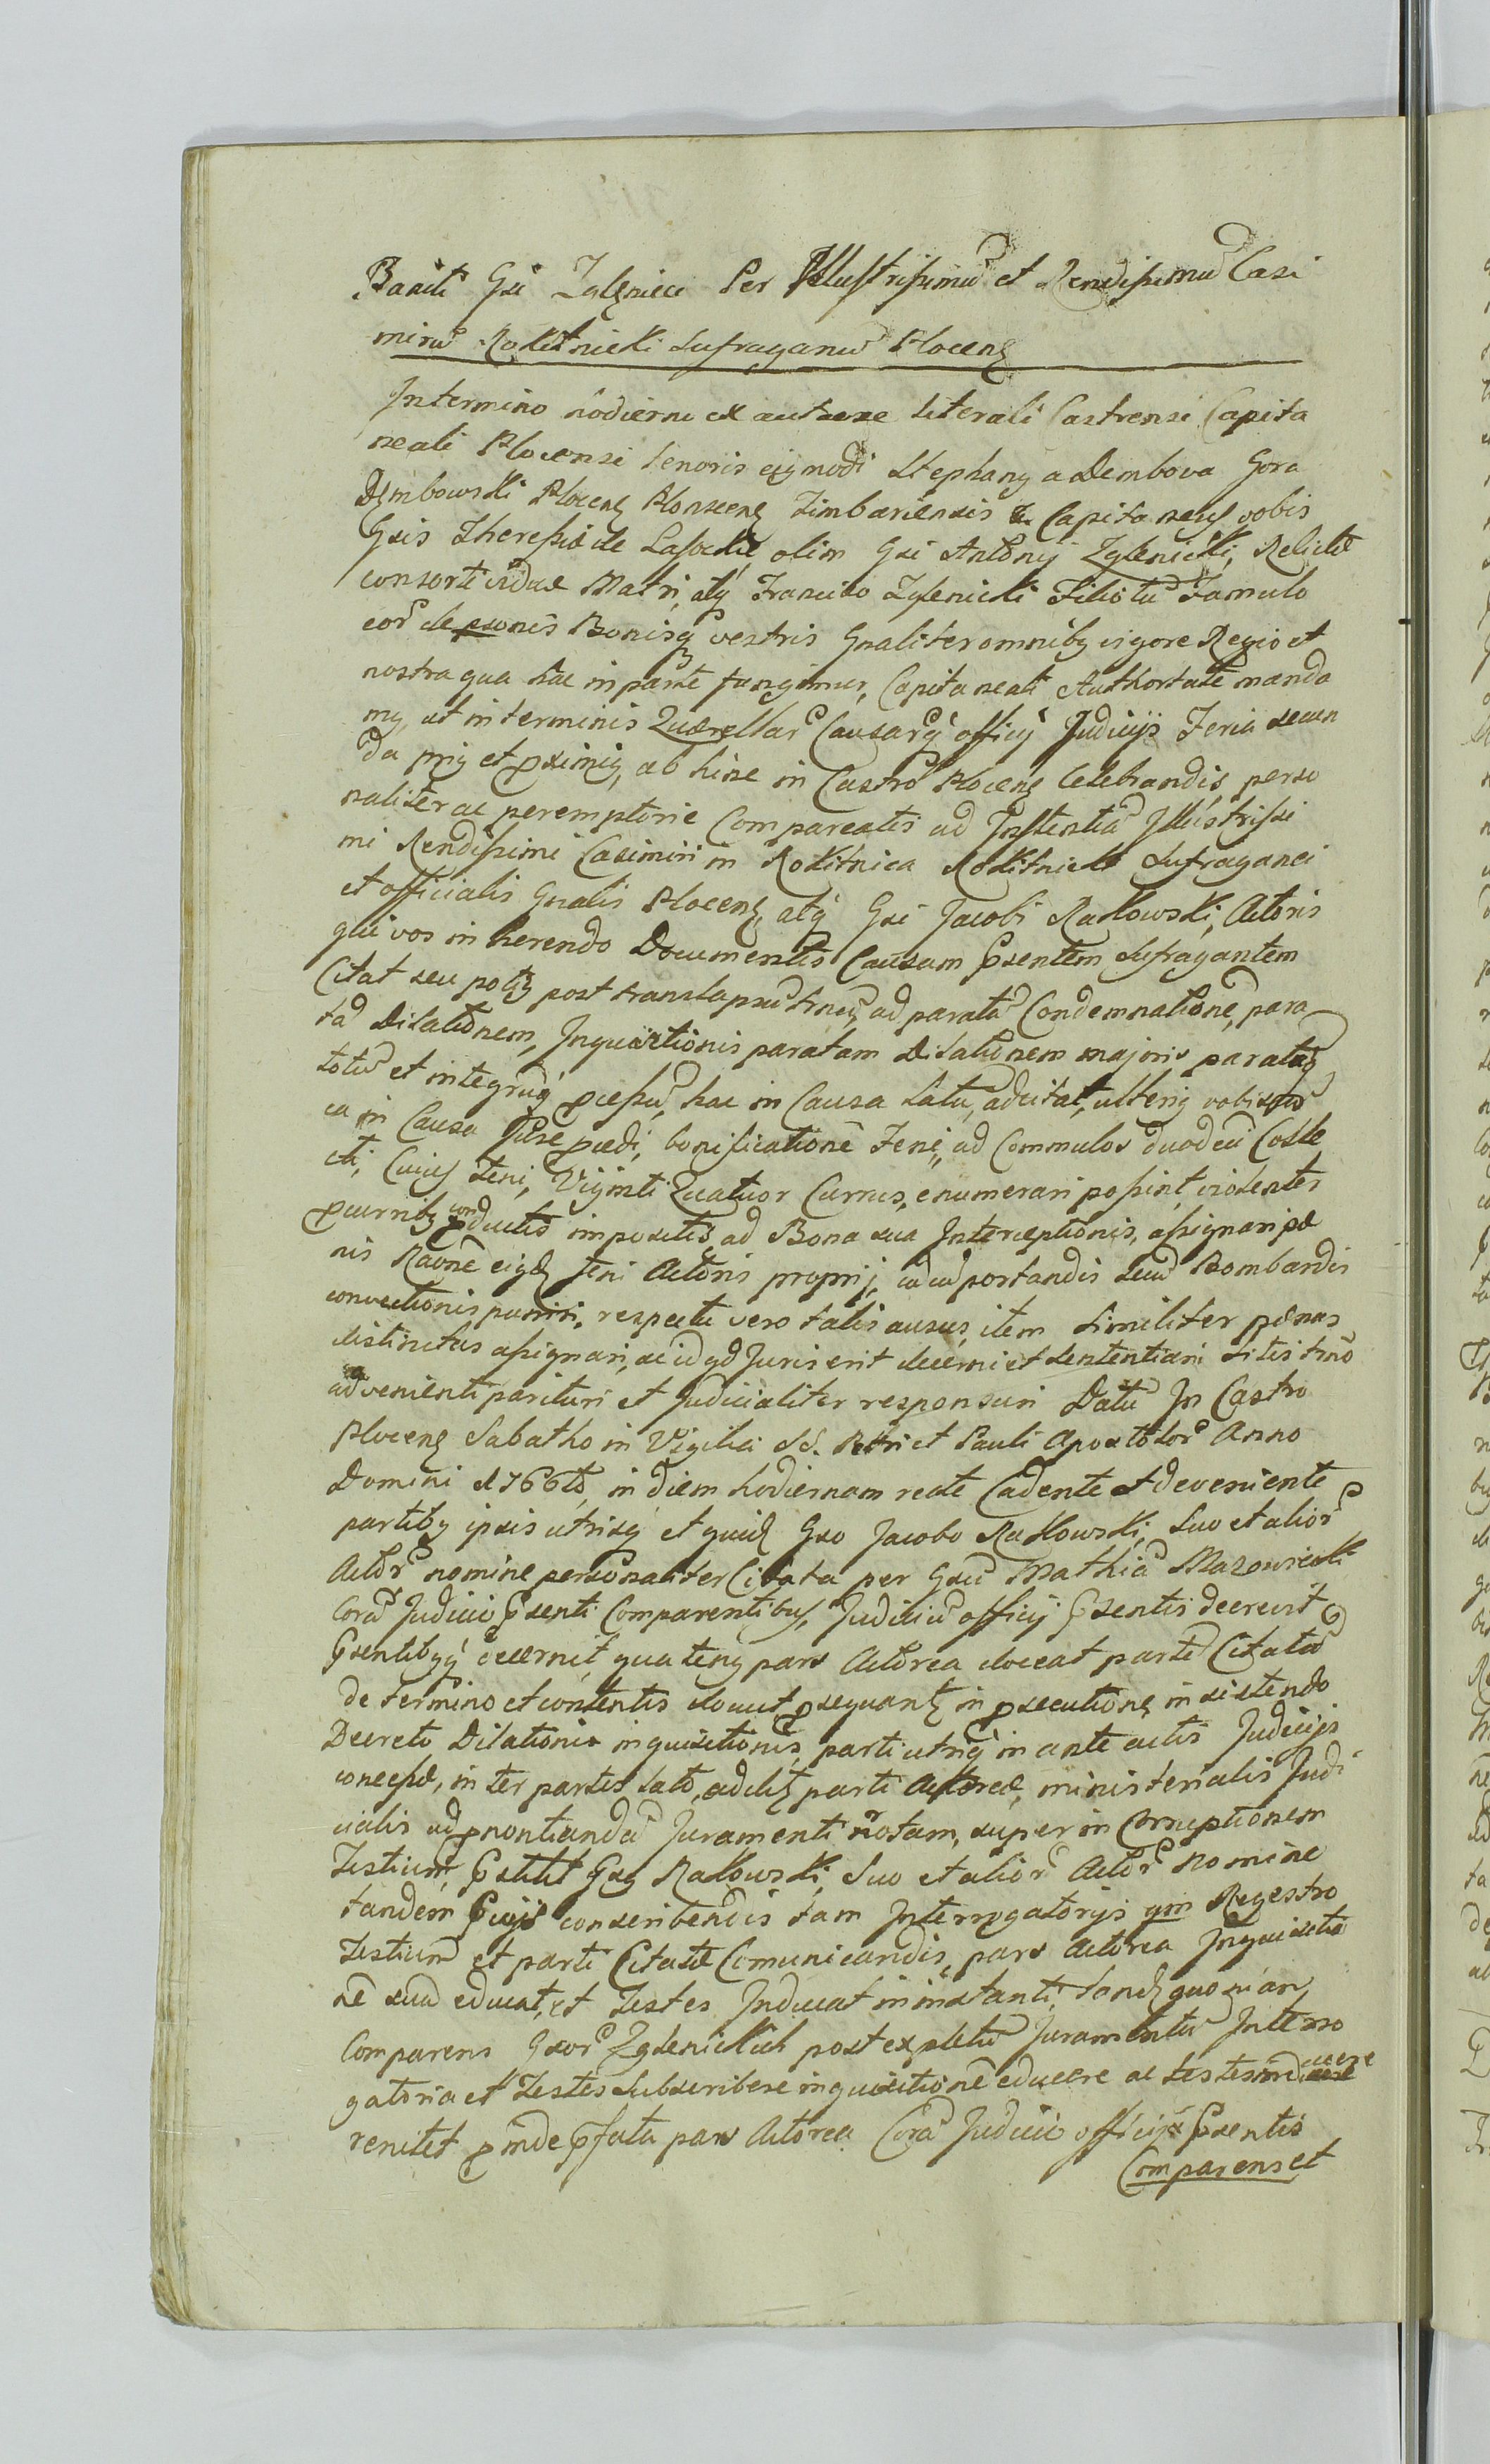 Baniti Gsi Zglenicci Per Illustrissimū et Rendissimū Casi
mirū Rokitnicki Sufraganū Plocenȩ
In termino hodierno ex literali Castrensi Capita
neali Plocensi tenoris ejqmodi Stephanq a Dembowa Gora
Dembowski Plocenȩ Plonscenȩ Zimbariensis Capitaneus vobis
Gsis Theressiæ de Lasockie olim Gsi Antonij Zglenicki, Relictæ
consorti viduæ Matri, atq Francisco Zglenicki Filio tū Famulo
eor̄ de psonis Bonisq vestris Gnaliter omnibq vigore Regio et
nostra qua hac in parte fungimur, Capitaneali Authoritate manda
mq, ut in terminis Querellar̄ Causarq̄ officij Judicijs Feria secun
da et pximiq, ab hinc in Castro Plocenȩ Celebrandis, perso
naliter ac peremptorie Compareatis ad Instantiā Illustrissi
mi Rendissimi Casimiri in Rokitnica Rokitnicki Sufraganei
et officialis Gnalis Plocenȩ, atq Gsi Jacobi Rakowski, Actoris
qui vos in herendo Documentis Causam Psentem Sufragantem
Citat seu potiq post translapsū ad paratā Condemnationē, para
tā Dilationem, Inquisitionis paratam Dilationem majoris paratāq
totū et integrūq pcessū, hac in Causa Latū, adcitat, ulteriq vobiscū
ca in Causa Jure pcedi, bonificationē Feni, ad Commulos duodecī Colle
cti, Cuius feni, Viginti Quatuor Currus, enumerari possint, violenter
p curribq conductis impositis, ad Bona sua Interceptionis, assignari pæ
nis Raōne eiqd feni Actoris proprij, portandis secū Bombardis
convectionis puniri, respectu vero talis ausus, item similiter pænas
distinctas assignari, ac id qd Juris erit decerni et sententiari Sitis tnō
advenienti parituri et Judicialiter responsuri Datū In Castro
Plocenȩ Sabatho in Vigilia SS. Petri et Pauli Apostolor̄ Anno
Domini 1766tō, in diem hodiernam recte Cadente et deveniente
partibq ipsis utrisq et quid Gso Jacobo Rakowski, Suo et alior̄
Actōr̄ nomine personaliter Citata per Gsū Mathiā Mazowiecki
Corā Judicio Psenti Comparentibus, Judiciū officij Psentis decrevit
Psentibqq decernit, quatenq pars Actorea doceat partē Citatā
de termino et contentis docuit psequantȩ in psecutionȩ insistendo
Decreto Dilationis inquisitionis, parti utriq in ante actis Judicijs
concessæ, inter partes lato, adcitȩ parti Actoreæ, ministerialis Judi
cialis ad pnontiandā Juramenti rotam, super in Corruptionem
Testium, Pstitit Gsq Rakowski, Suo et alior̄ Actōr̄ nomine
tandem conscribendis tam Interrogatorijs qm Regestro
Testium et parti Citatæ Comunicandis, pars Actorea Inquisitio
nē suā educat, et Testes Inducat in instanti, tandȩ quoniam
Comparens Gsor̄ Zglenickich post expletū Juramentū Interro
gatoria et Testes Subscribere inquisitionē educere ac testes inducere
renitet pinde Pfata pars Actorea Corā Judicio officij Psentis
Comparens et